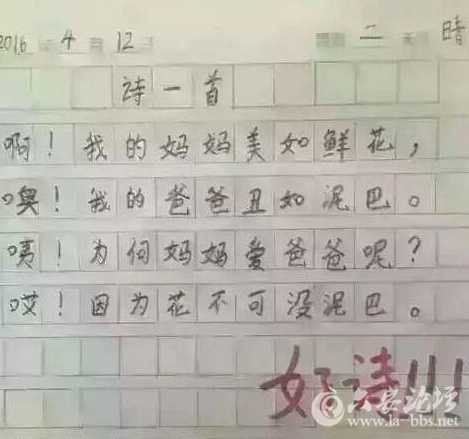 2016年4月12日 星期二 天气 晴
诗一首
啊！我的妈妈美如鲜花，
噢！我的爸爸丑如泥巴。
咦！为何妈妈爱爸爸呢？
哎！因为花不可没泥巴。
好诗!!!
六安论坛
www.la-bbs.net